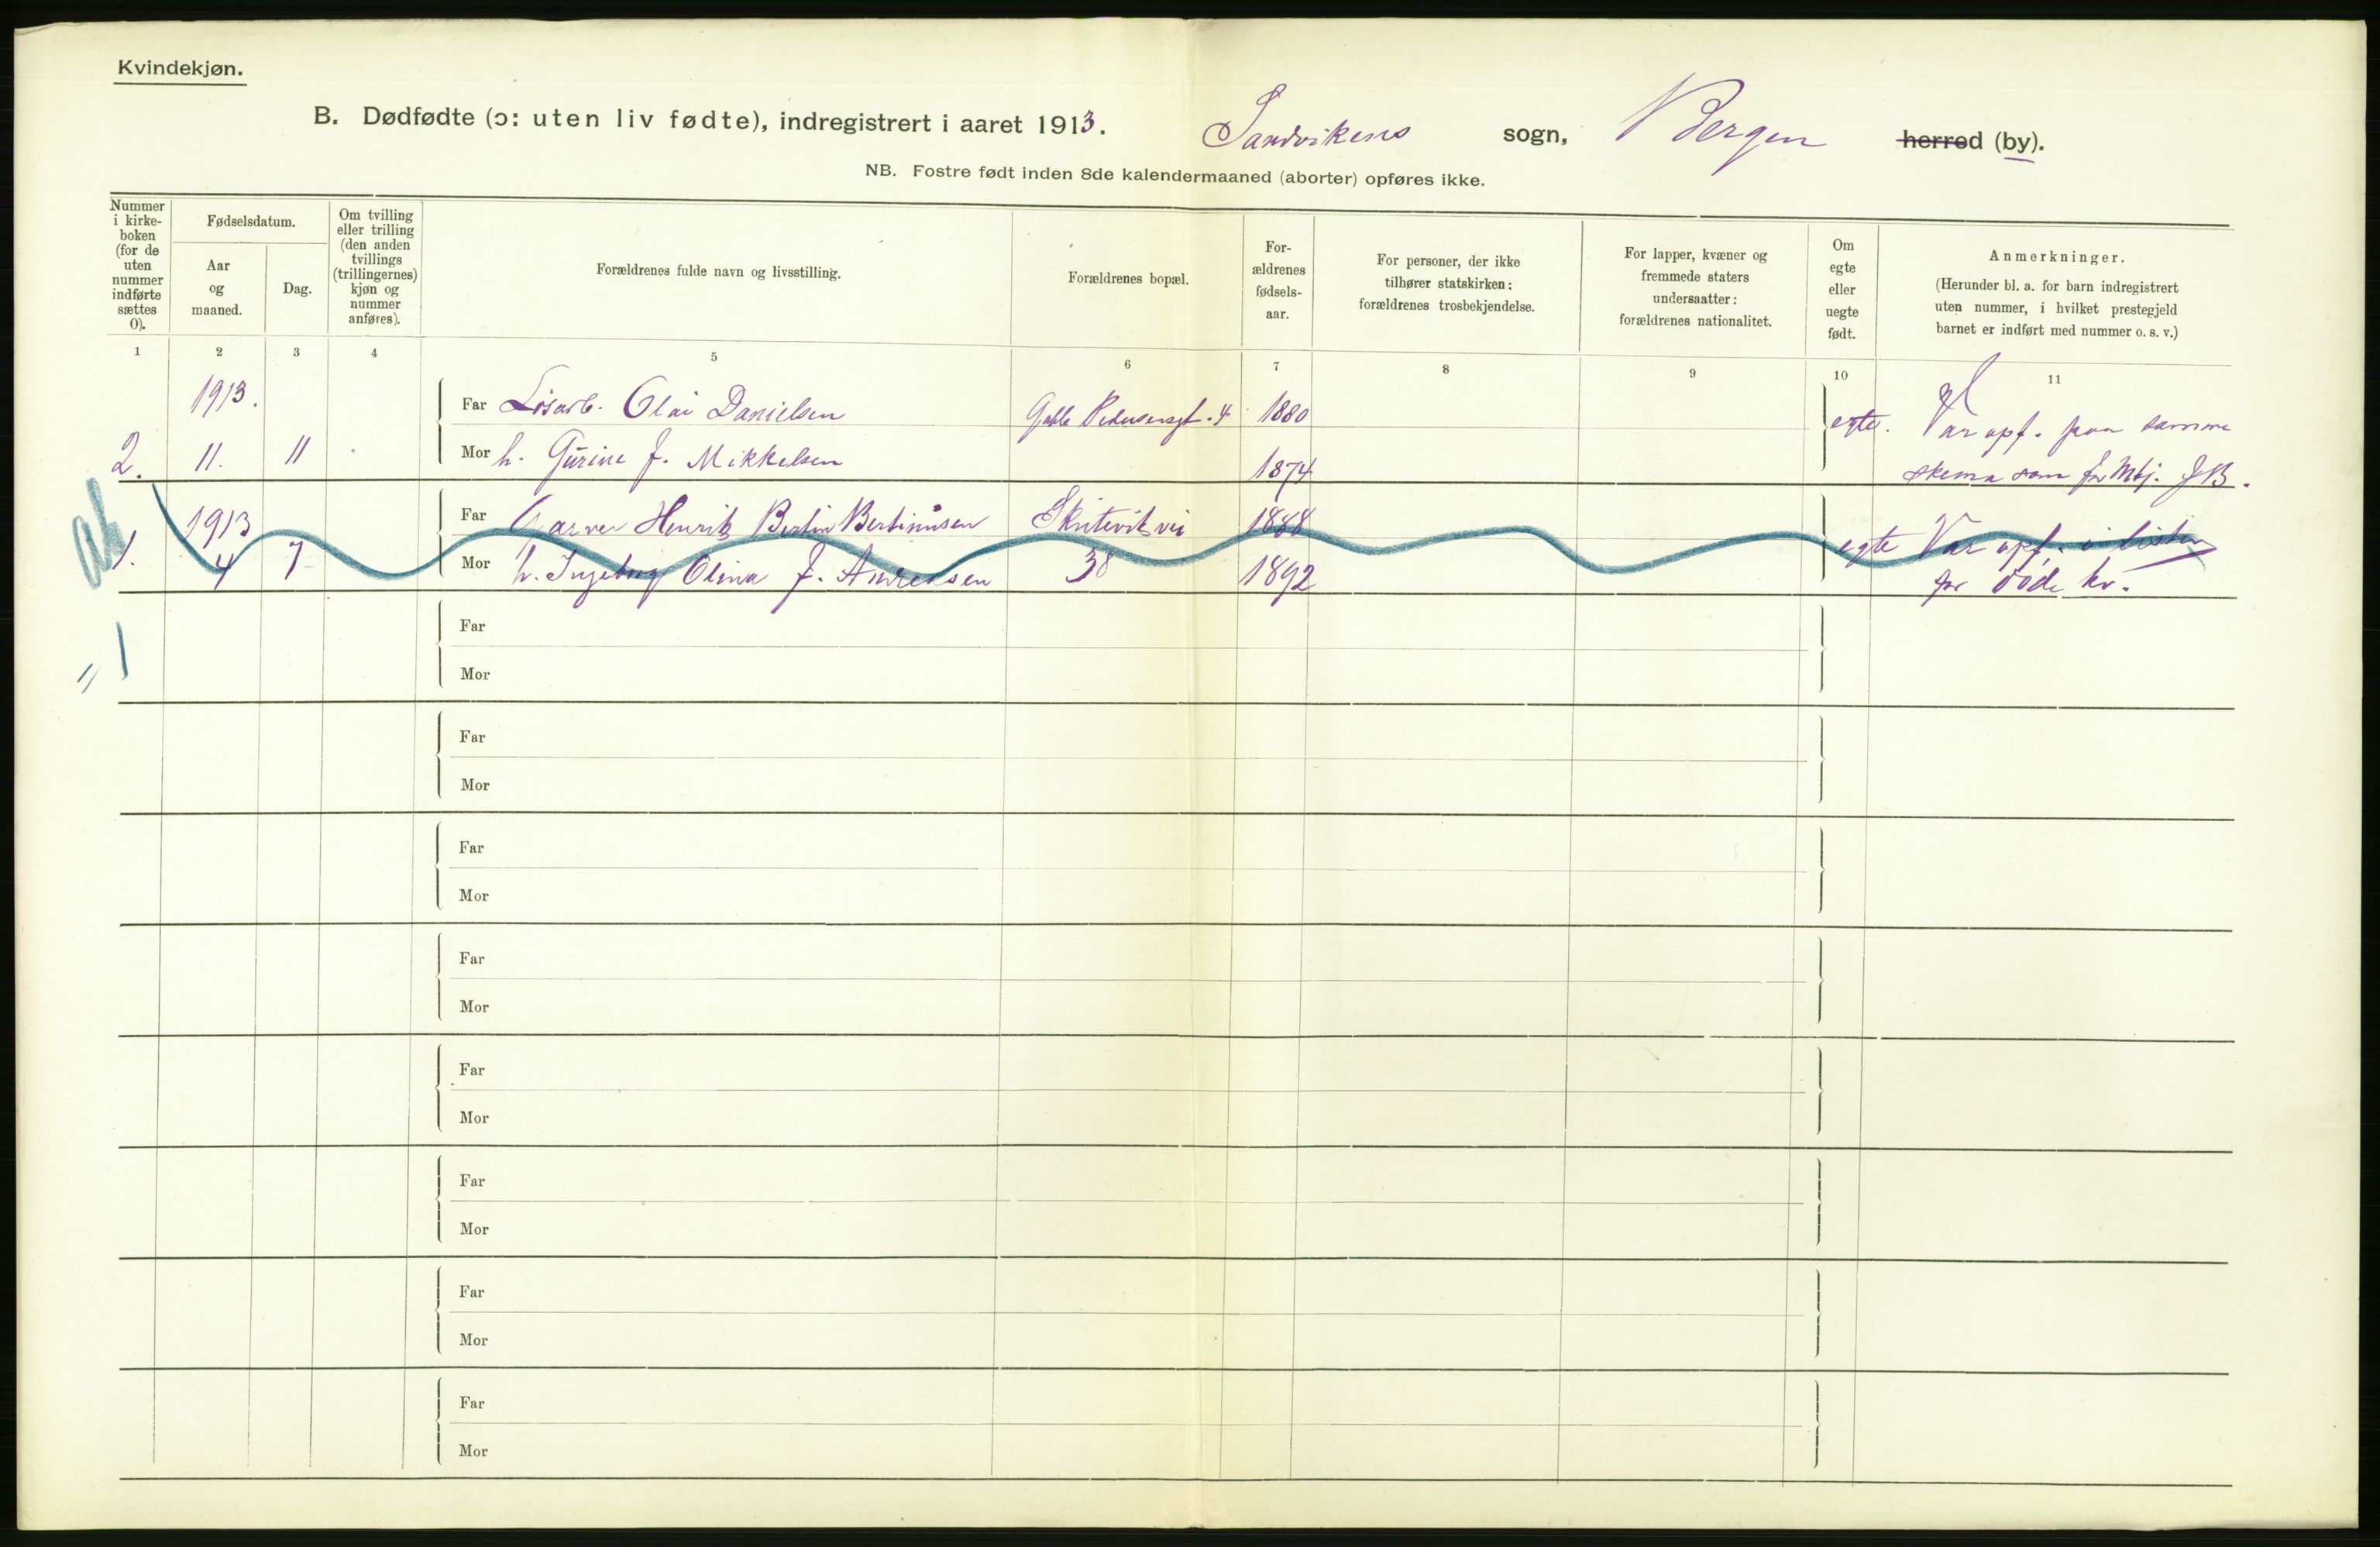 Kvindekjøn.
B. Dødfødte (ɔ: uten liv fødte), indregistrert i aaret 1913. Sandvikens sogn, Bergen herred (by).
NB. Fostre født inden 8de kalendermaaned (aborter) opføres ikke.
Nummer i kirke- boken (for de uten nummer indførte sættes 0).
Fødselsdatum.
Aar og maaned.
Dag.
Om tvilling eller trilling (den anden tvillings (trillingernes) kjøn og nummer anføres).
Forældrenes fulde navn og livsstilling.
Forældrenes bopæl.
For- ældrenes fødsels- aar.
For personer, der ikke tilhører statskirken: forældrenes trosbekjendelse.
For lapper, kvæner og fremmede staters undersaatter: forældrenes nationalitet.
Om egte eller uegte født.
Anmerkninger.
(Herunder bl. a. for barn indregistrert uten nummer, i hvilket prestegjeld barnet er indført med nummer o. s. v.)
1 2 3 4 5 6 7 8 9 10 11
1913. Far Løsarb. Olai Danielsen Gabble Pedersensgt. 4 1880 egte. Var opf. paa samme
2. 11. 11 Mor h. Gurine f. Mikkelsen 1874 skema som for Mkj. JB.
1913 Far Garver Henrik Bertin Bertinusen Skutevikvei 1888 egte Var opf. i listen
1. 4 7 Mor h. Ingeborg Olina f. Andreasen 38 1892 for døde kv.
Far
" 1
Mor
Far
Mor
Far
Mor
Far
Mor
Far
Mor
Far
Mor
Far
Mor
Far
Mor